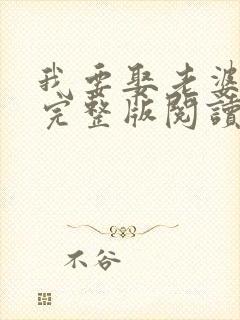 我要娶老婆
完整版閱讀
不谷